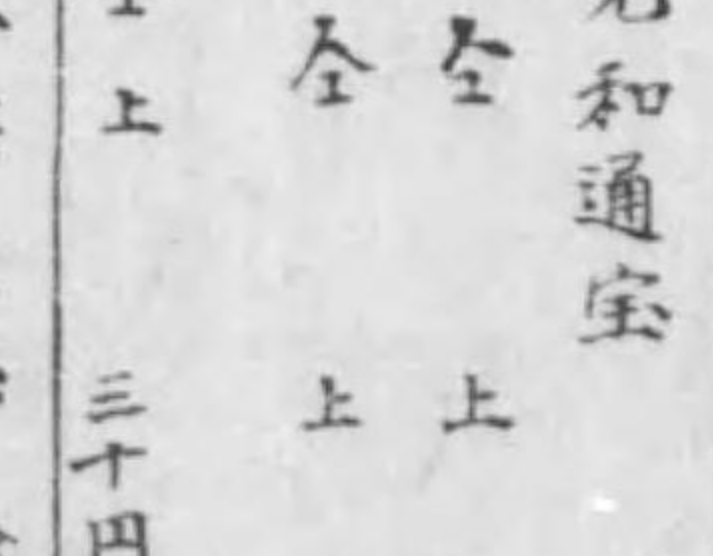 和通宝
仝 上
仝 上
上 三十円